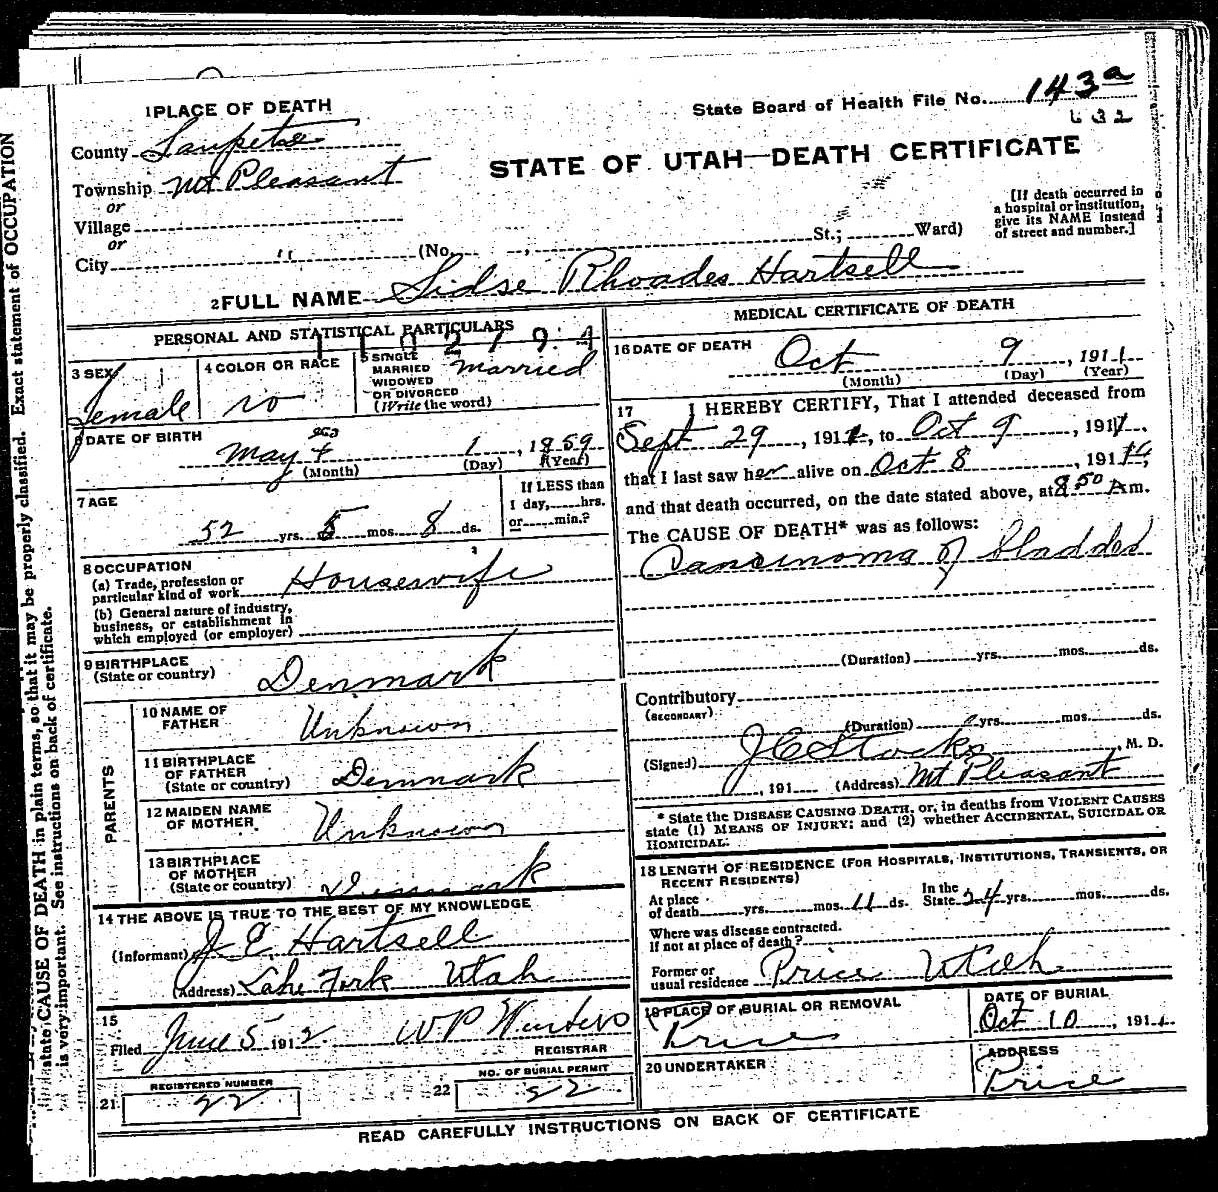 State Board of Health File No. 143 a
632
1 PLACE OF DEATH
County Sanpete
STATE OF UTAH—DEATH CERTIFICATE
Township Mt Pleasant
or
Village
or
City
(No. St.; Ward)
[If death occurred in
a hospital or institution,
give its NAME instead
of street and number.]
2 FULL NAME Sidse Rhoades Hartsell
PERSONAL AND STATISTICAL PARTICULARS
3 SEX
Female
4 COLOR OR RACE
W
5 SINGLE
MARRIED
WIDOWED
OR DIVORCED
(Write the word)
Married
6 DATE OF BIRTH
May 1, 1859
(Month) (Day) (Year)
7 AGE
52 yrs. 5 mos. 8 ds.
If LESS than
1 day, hrs.
or min.?
8 OCCUPATION
(a) Trade, profession or
particular kind of work Housewife
(b) General nature of industry,
business, or establishment in
which employed (or employer)
9 BIRTHPLACE
(State or country) Denmark
PARENTS
10 NAME OF
FATHER Unknown
11 BIRTHPLACE
OF FATHER
(State or country) Denmark
12 MAIDEN NAME
OF MOTHER Unknown
13 BIRTHPLACE
OF MOTHER
(State or country) Denmark
14 THE ABOVE IS TRUE TO THE BEST OF MY KNOWLEDGE
(Informant) J E Hartsell
(Address) Lake Fork Utah
15
Filed June 5 1912 W P Winters
REGISTRAR
21 REGISTERED NUMBER
22
22 NO. OF BURIAL PERMIT
22
MEDICAL CERTIFICATE OF DEATH
16 DATE OF DEATH
Oct 9, 1911
(Month) (Day) (Year)
17 I HEREBY CERTIFY, That I attended deceased from
Sept 29, 1911, to Oct 9, 1911,
that I last saw her alive on Oct 8, 191
and that death occurred, on the date stated above, at 8 50 A m.
The CAUSE OF DEATH* was as follows:
Carcinoma of bladder
(Duration) yrs. mos. ds.
Contributory
(SECONDARY)
(Duration) yrs. mos. ds.
(Signed) J C Stocks, M. D.
, 191 (Address) Mt Pleasant
* State the DISEASE CAUSING DEATH, or, in deaths from VIOLENT CAUSES
state (1) MEANS OF INJURY; and (2) whether ACCIDENTAL, SUICIDAL OR
HOMICIDAL.
18 LENGTH OF RESIDENCE (FOR HOSPITALS, INSTITUTIONS, TRANSIENTS, OR
RECENT RESIDENTS)
At place
of death yrs. mos. 11 ds.
In the
State 34 yrs. mos. ds.
Where was disease contracted.
If not at place of death?
Former or
usual residence Price Utah
19 PLACE OF BURIAL OR REMOVAL
Price
DATE OF BURIAL
Oct 10, 1911
20 UNDERTAKER
ADDRESS
Price
READ CAREFULLY INSTRUCTIONS ON BACK OF CERTIFICATE
state CAUSE OF DEATH in plain terms, so that it may be properly classified. Exact statement of OCCUPATION
is very important. See instructions on back of certificate.